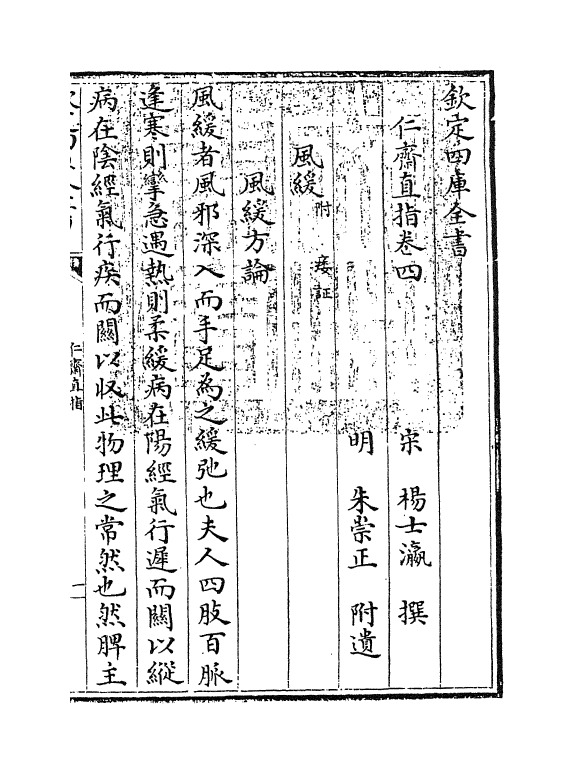 欽定四庫全書
仁齋直指卷四
宋 楊士瀛 撰
明 朱崇正 附遺
風緩附 痿証
風緩方論
風緩者風邪深入而手足為之緩弛也夫人四肢百脈
逢寒則攣急遇熱則柔緩病在陽經氣行遲而關以縱
病在陰經氣行疾而關以收此物理之常然也然脾主
仁齋直指
一